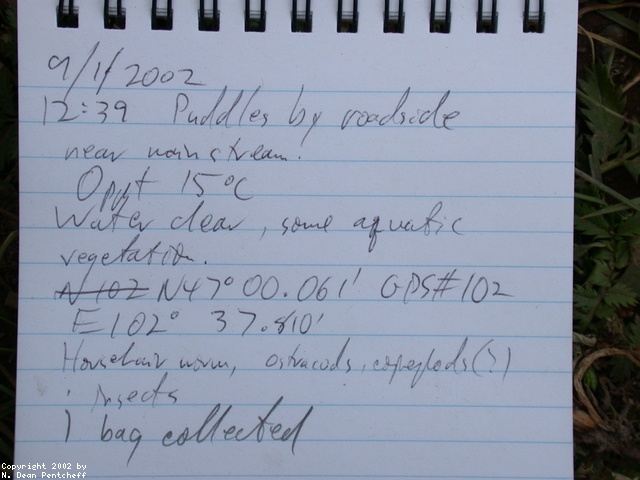 9/1/2002
12:39 Puddles by roadside
near main stream.
0ppt 15°C
Water clear, some aquatic
vegetation.
N 102 N47° 00.061' GPS#102
E102° 37.810'
Horsehair worm, ostracods, copepods(?)
insects
1 bag collected
Copyright 2002 by
N. Dean Pentcheff